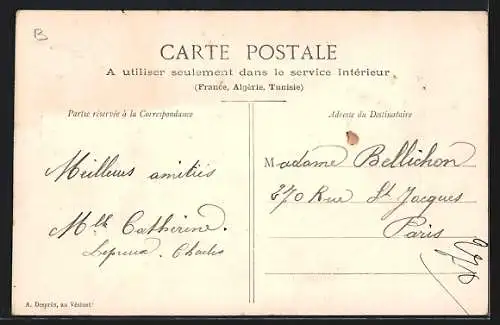 B
CARTE POSTALE
A utiliser seulement dans le service intérieur
(France, Algérie, Tunisie)
Partie réservée à la Correspondance
Adresse du Destinataire
Meilleures amitiés
Mlle Cathérine.
Charles
Madame Bellichon
270 Rue St Jacques
Paris
A. Desprès, au Vésinet